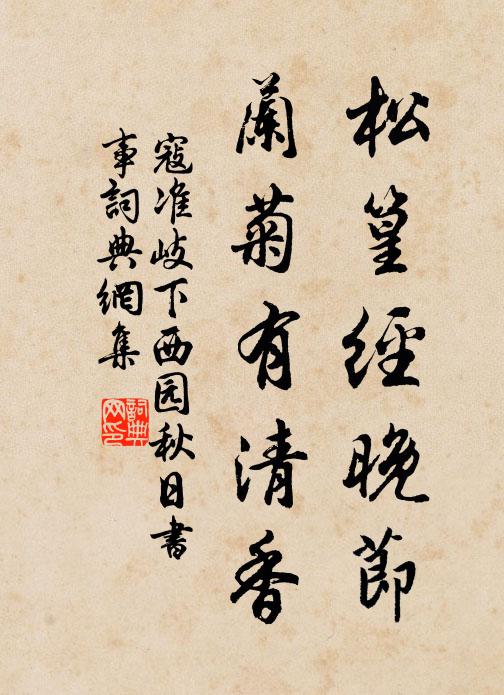 松篁經晚節
蘭菊有清香
寇准岐下西园秋日書
事詞典網集
詞典网印